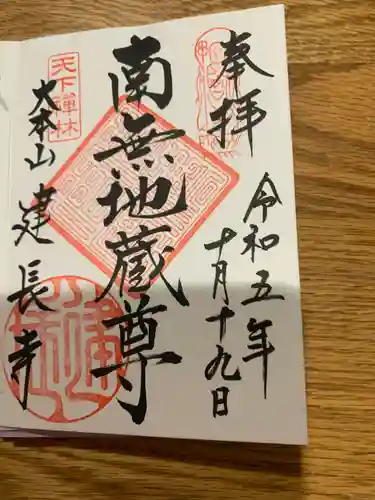 奉拝
令和五年
十月十九日
南無地蔵尊
天下禅林
大本山建長寺